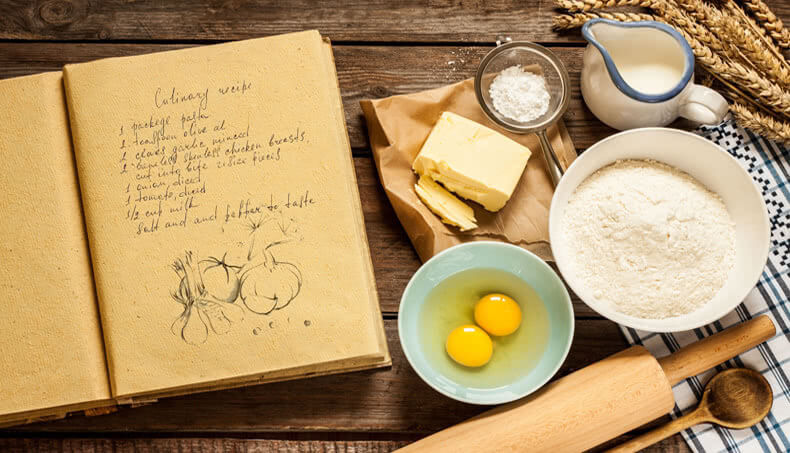 Culinary recipe
1 package pasta
1 teaspoon olive oil
2 cloves garlic minced
2 boneless skinless chicken breasts,
cut into bite resize pieces
1 onion, diced
1 tomato, diced
1/2 cup milk
salt and and pepper to taste